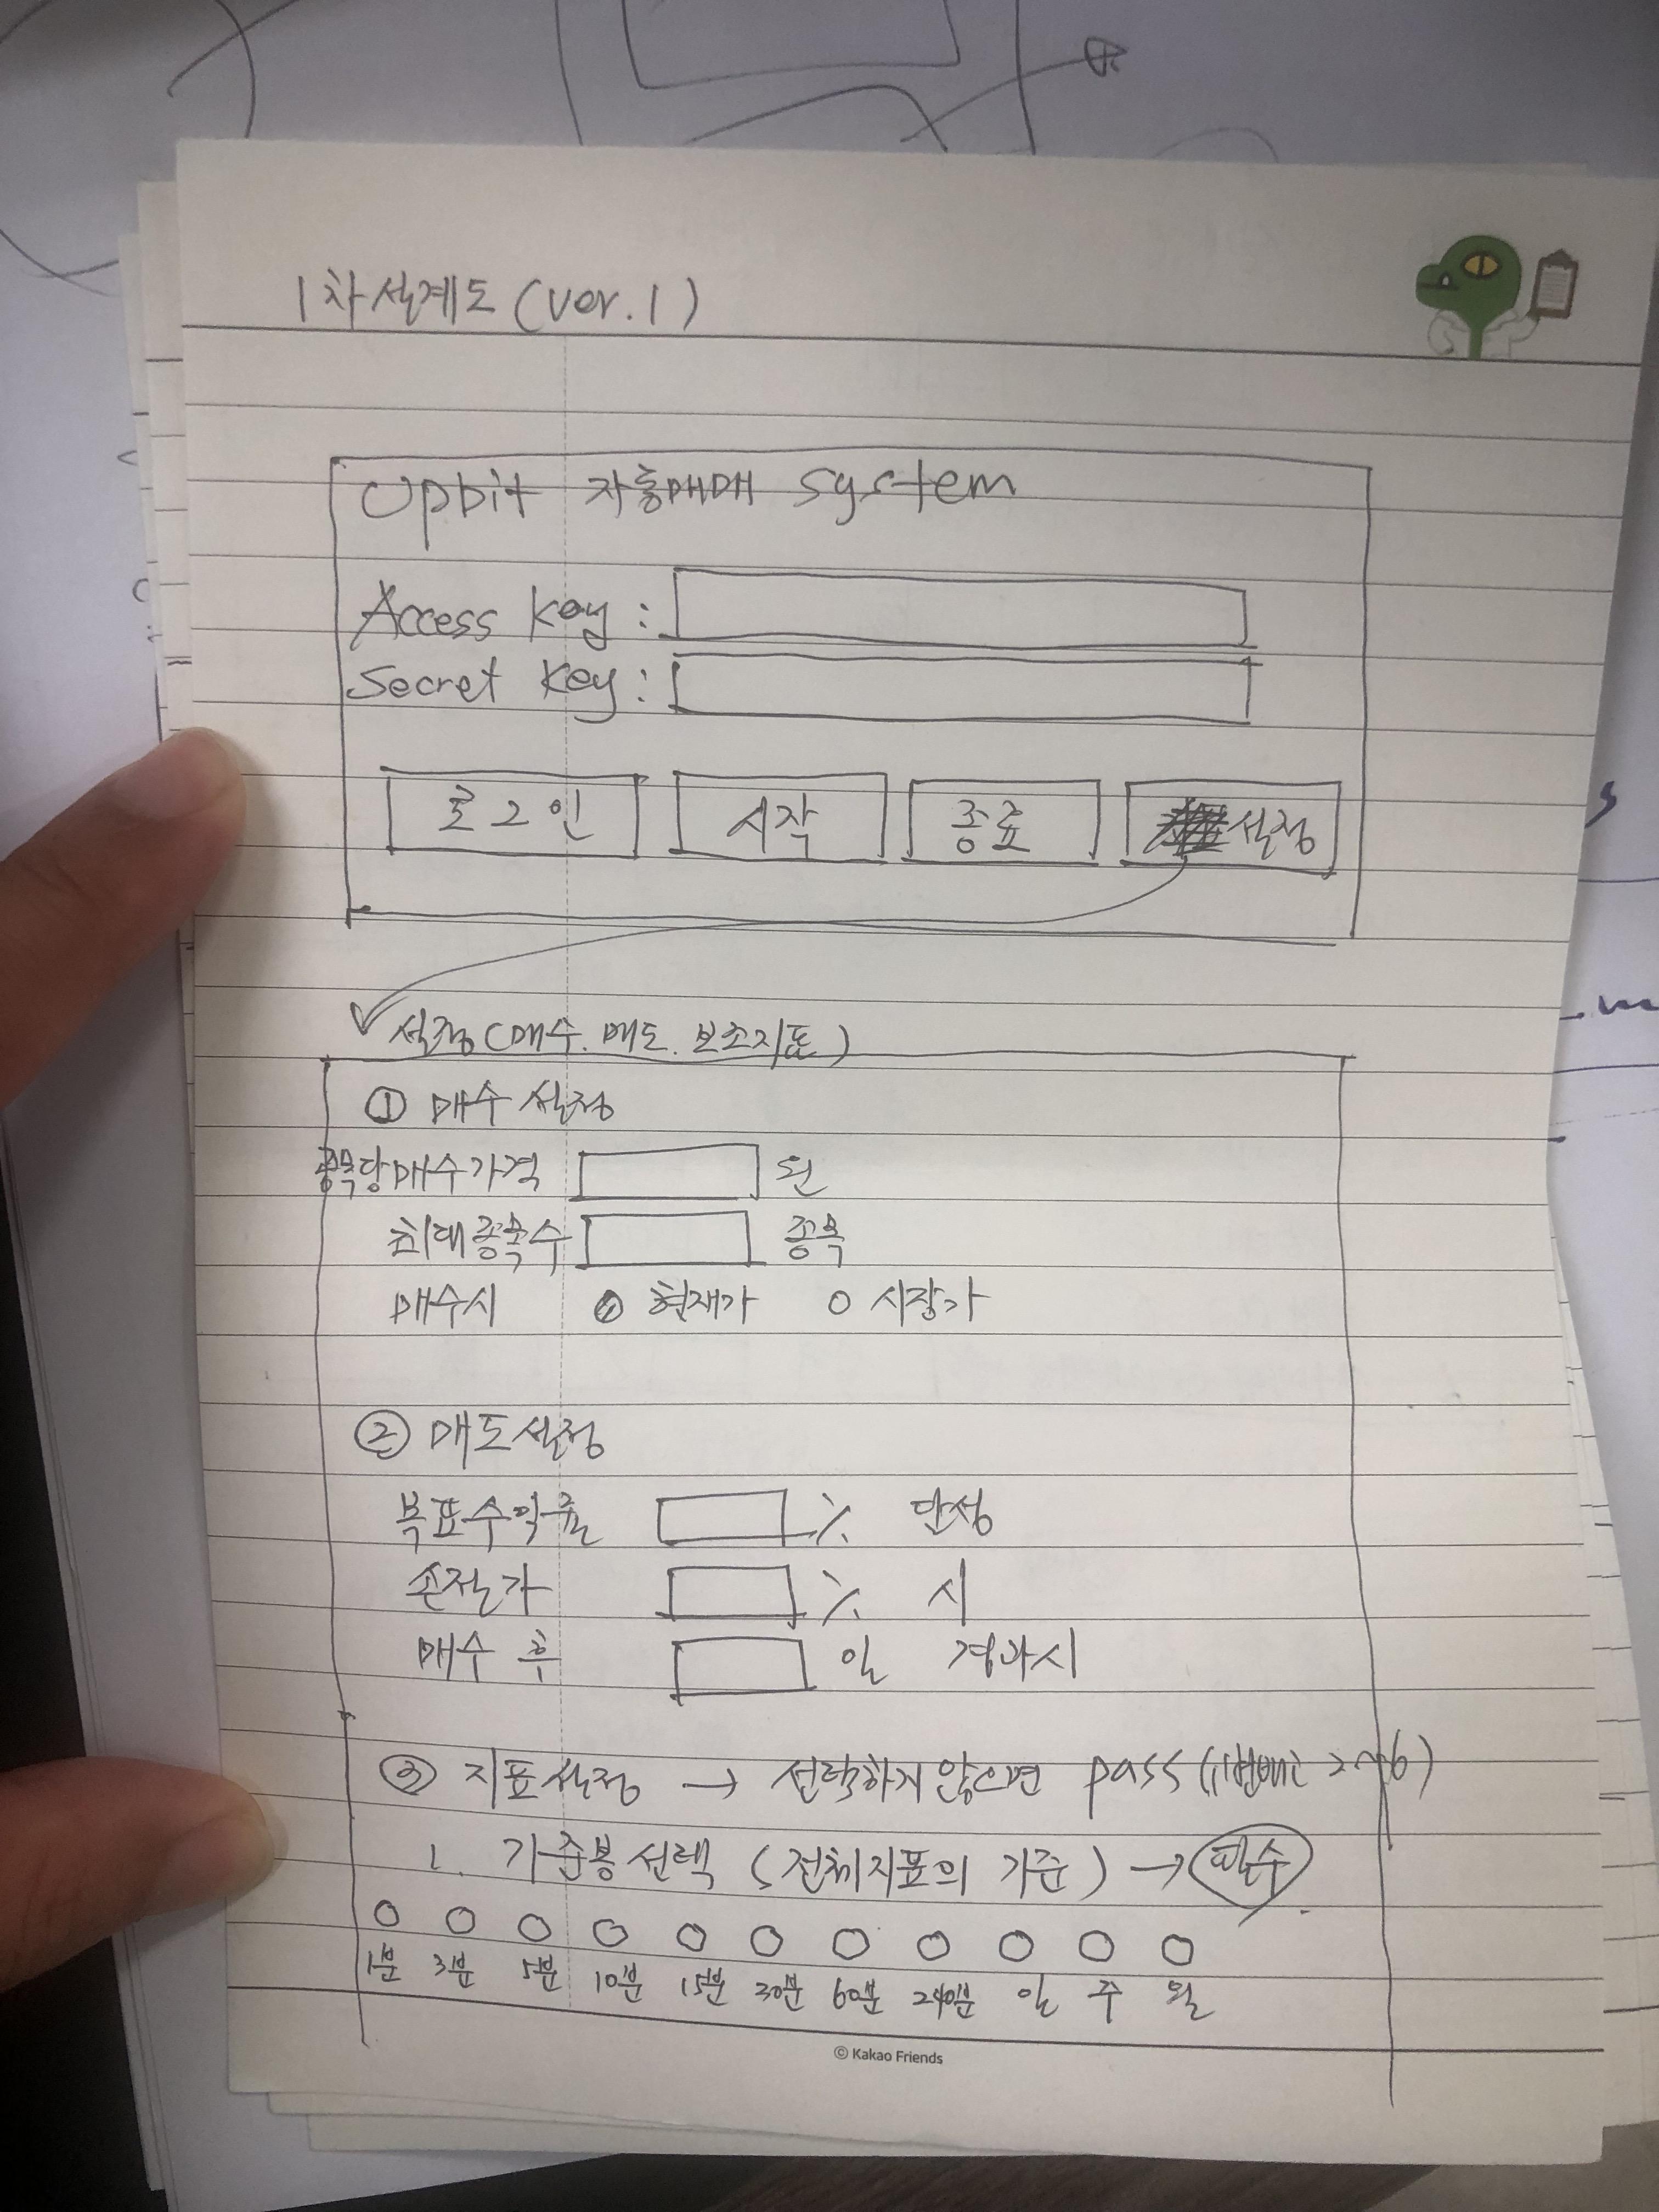 1차설계도 (ver.1)
Upbit 자동매매 system
Access key :
Secret key :
로그인 시작 종료 설정
설정 (매수. 매도. 보조지표)
① 매수 설정
종목당 매수가격 원
최대종목수 종목
매수시 현재가 시장가
② 매도설정
목표수익률 % 달성
손절가 % 시
매수 후 일 경과시
③ 지표설정 → 선택하지 않으면 pass
1. 기준봉선택 (전체지표의 기준) → 필수
1분 3분 5분 10분 15분 30분 60분 240분 일 주 월
© Kakao Friends